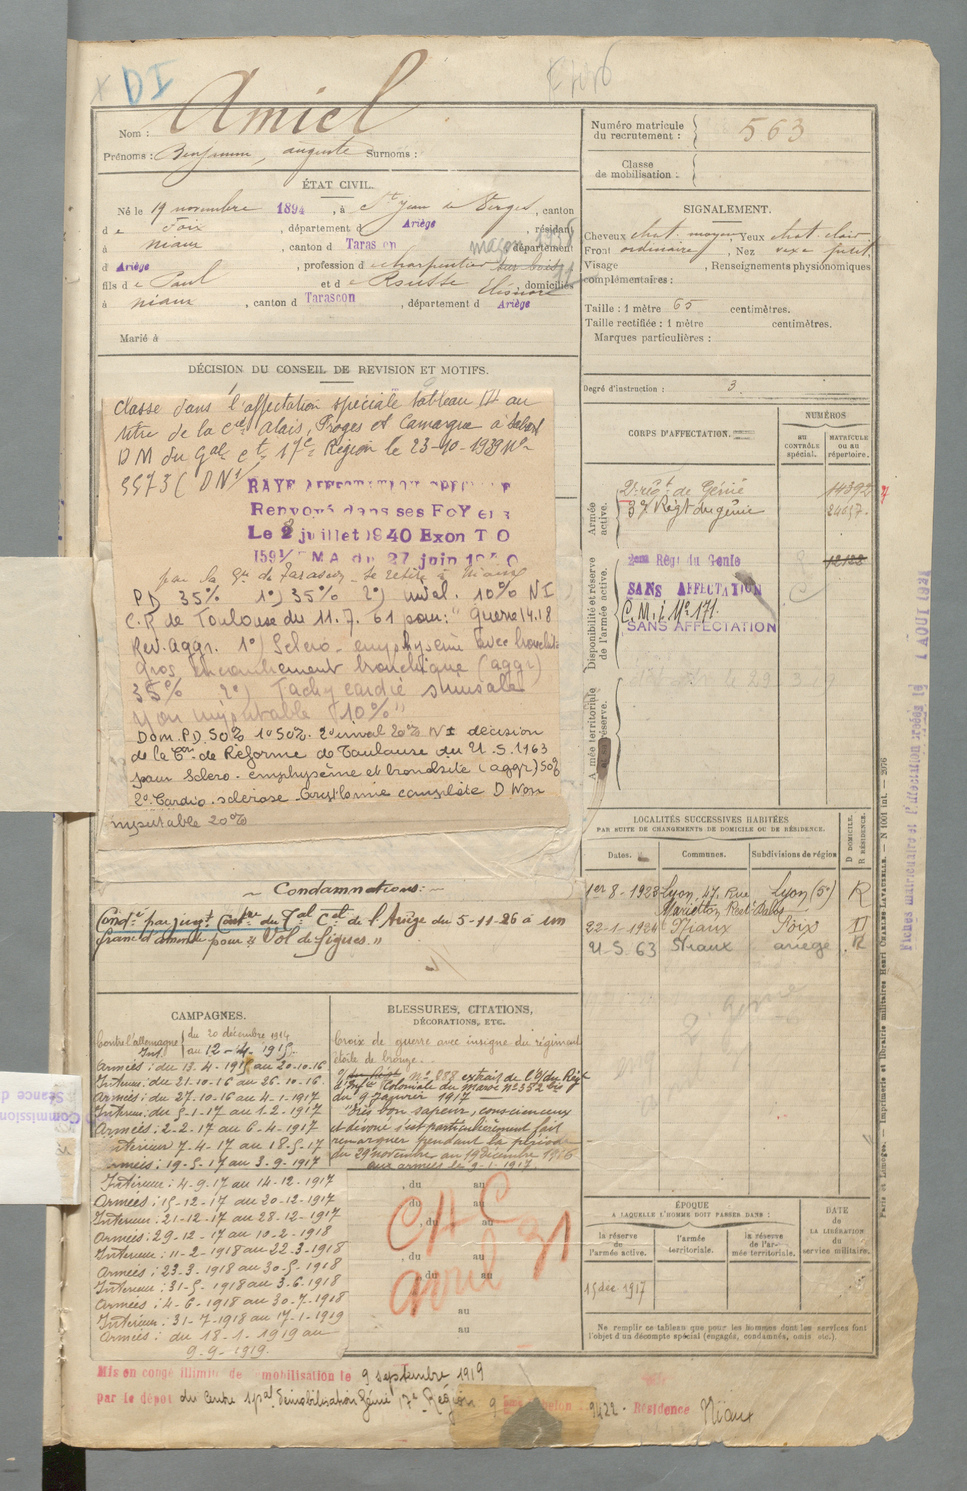 DI
Nom : Amiel
Prénoms : Benjamin, auguste Surnoms :
ÉTAT CIVIL.
Né le 19 novembre 1894, à St Jean de Verges, canton
de Foix, département d Ariège, résidant
à Niaux, canton d Tarascon, département
d Ariège, profession de charpentier
fils de Paul et de Rousse Eléonore, domiciliés
à Niaux, canton d Tarascon, département d Ariège
Marié à
DÉCISION DU CONSEIL DE REVISION ET MOTIFS.
Classé dans l'affectation spéciale tableau III au
titre de la Cie Alais, Froges et Camargue à Sabart
DM du Gal Ct 17e Région le 23-10-1939 No
5573 C DN1
RAYE AFFECTATION SPECIALE
Renvoyé dans ses FoYers
Le 2 juillet 1940 Exon T O
1591/EMA du 27 juin 1940
par la Gie de Tarascon se retire à Niaux
PD 35% 1°) 35% 2°) inval. 10% NI
C.R de Toulouse du 11.7.61 pour : "Guerre 14.18
Rev. Aggr. 1°) Scléro-emphysème avec bronchite
gros encombrement bronchique (aggr)
35% 2°) Tachycardie sinusale
Non imputable 10%"
Dom. P.D. 50% 1° 50% 2° inval 20% NI décision
de la Con de Réforme de Toulouse du 21.5.1963
pour Scléro-emphysème et bronchite (aggr) 50%
2° Cardio-sclérose Arythmie complète D Non
imputable 20%
Condamnations :
Condé par jugt Contre du Tal Cel de l'Ariège du 5-11-26 à un
franc d'amende pour "Vol de figues."
CAMPAGNES.
Contre l'allemagne { du 20 décembre 1914
Int. { au 12-4-1915
Armées : du 13-4-1915 au 20-10-16
Intérieur : du 21-10-16 au 26-10-16
Armées : du 27-10-16 au 4-1-1917
Intérieur : du 5-1-17 au 1-2-1917
Armées : 2-2-17 au 6-4-1917
Intérieur 7-4-17 au 18-5-17
Armées : 19-5-17 au 3-9-1917
Intérieur : 4-9-17 au 14-12-1917
Armées : 15-12-17 au 20-12-1917
Intérieur : 21-12-17 au 28-12-1917
Armées : 29-12-17 au 10-2-1918
Intérieur : 11-2-1918 au 22-3-1918
Armées : 23-3-1918 au 30-5-1918
Intérieur : 31-5-1918 au 3-6-1918
Armées : 4-6-1918 au 30-7-1918
Intérieur : 31-7-1918 au 17-1-1919
Armées : du 18-1-1919 au
9-9-1919.
BLESSURES, CITATIONS,
DÉCORATIONS, ETC.
Croix de guerre avec insigne du régiment
étoile de bronze.
No 888 extrait de l'O/du Régt
d'Infie Coloniale du Maroc No 352
du 9 Janvier 1917
"Très bon sapeur, consciencieux
et dévoué s'est particulièrement fait
remarquer pendant la période
du 29 novembre au 19 décembre 1916
aux armées le 9-1-1917.
, du au
du au
, du au
, du au
, du au
au
au
CAC 31
Avril
Mis en congé illimité de démobilisation le 9 septembre 1919
par le dépôt du Centre Ipal Démobilisation Génie 17e Région 9 échelon 9422 - Résidence Niaux
Numéro matricule
du recrutement : 563
Classe
de mobilisation :
SIGNALEMENT.
Cheveux chat. moyen, Yeux chat. clair
Front ordinaire, Nez
Visage , Renseignements physionomiques
complémentaires :
Taille : 1 mètre 65 centimètres.
Taille rectifiée : 1 mètre centimètres.
Marques particulières :
Degré d'instruction : 3
CORPS D'AFFECTATION.
NUMÉROS
AU CONTRÔLE spécial.
MATRICULE OU AU répertoire.
Armée active.
2e régt de Génie 14392
3e Régt du génie
Disponibilité et réserve de l'armée active.
2ème Régt du Genie 12122
SANS AFFECTATION
C.M.i No 171.
SANS AFFECTATION
Armée territoriale et sa réserve.
LOCALITÉS SUCCESSIVES HABITÉES
PAR SUITE DE CHANGEMENTS DE DOMICILE OU DE RÉSIDENCE.
Dates. Communes. Subdivisions de région
D DOMICILE. R RÉSIDENCE.
1er 8-1923 Lyon, 47, Rue Lyon (5e) R
Marietton
22-1-1924 Niaux Foix D
21-5-63 Niaux ariège R
ÉPOQUE
A LAQUELLE L'HOMME DOIT PASSER DANS :
la réserve de l'armée active.
l'armée territoriale.
la réserve de l'armée territoriale.
DATE DE LA LIBÉRATION du service militaire.
15 déc 1917
Ne remplir ce tableau que pour les hommes dont les services font
l'objet d'un décompte spécial (engagés, condamnés, omis etc.).
Paris et Limoges. — Imprimerie et librairie militaires Henri CHARLES-LAVAUZELLE. — N 1001 int. — 2076